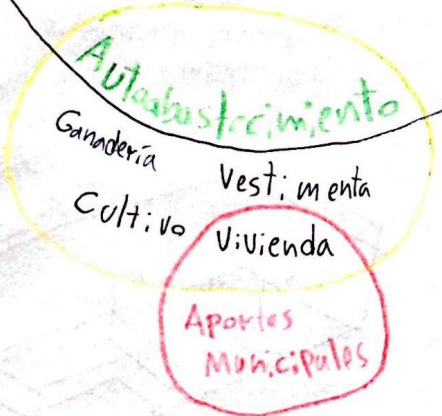 Autoabastecimiento
Ganadería
Vestimenta
Cultivo
Vivienda
Aportes
Municipales